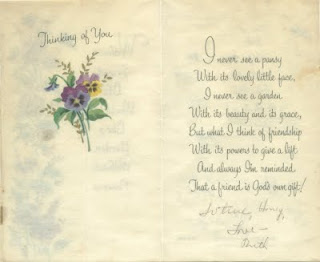 Thinking of You
I never see a pansy
With its lovely little face,
I never see a garden
With its beauty and its grace,
But what I think of friendship
With its powers to give a lift
And always I'm reminded
That a friend is God's own gift!